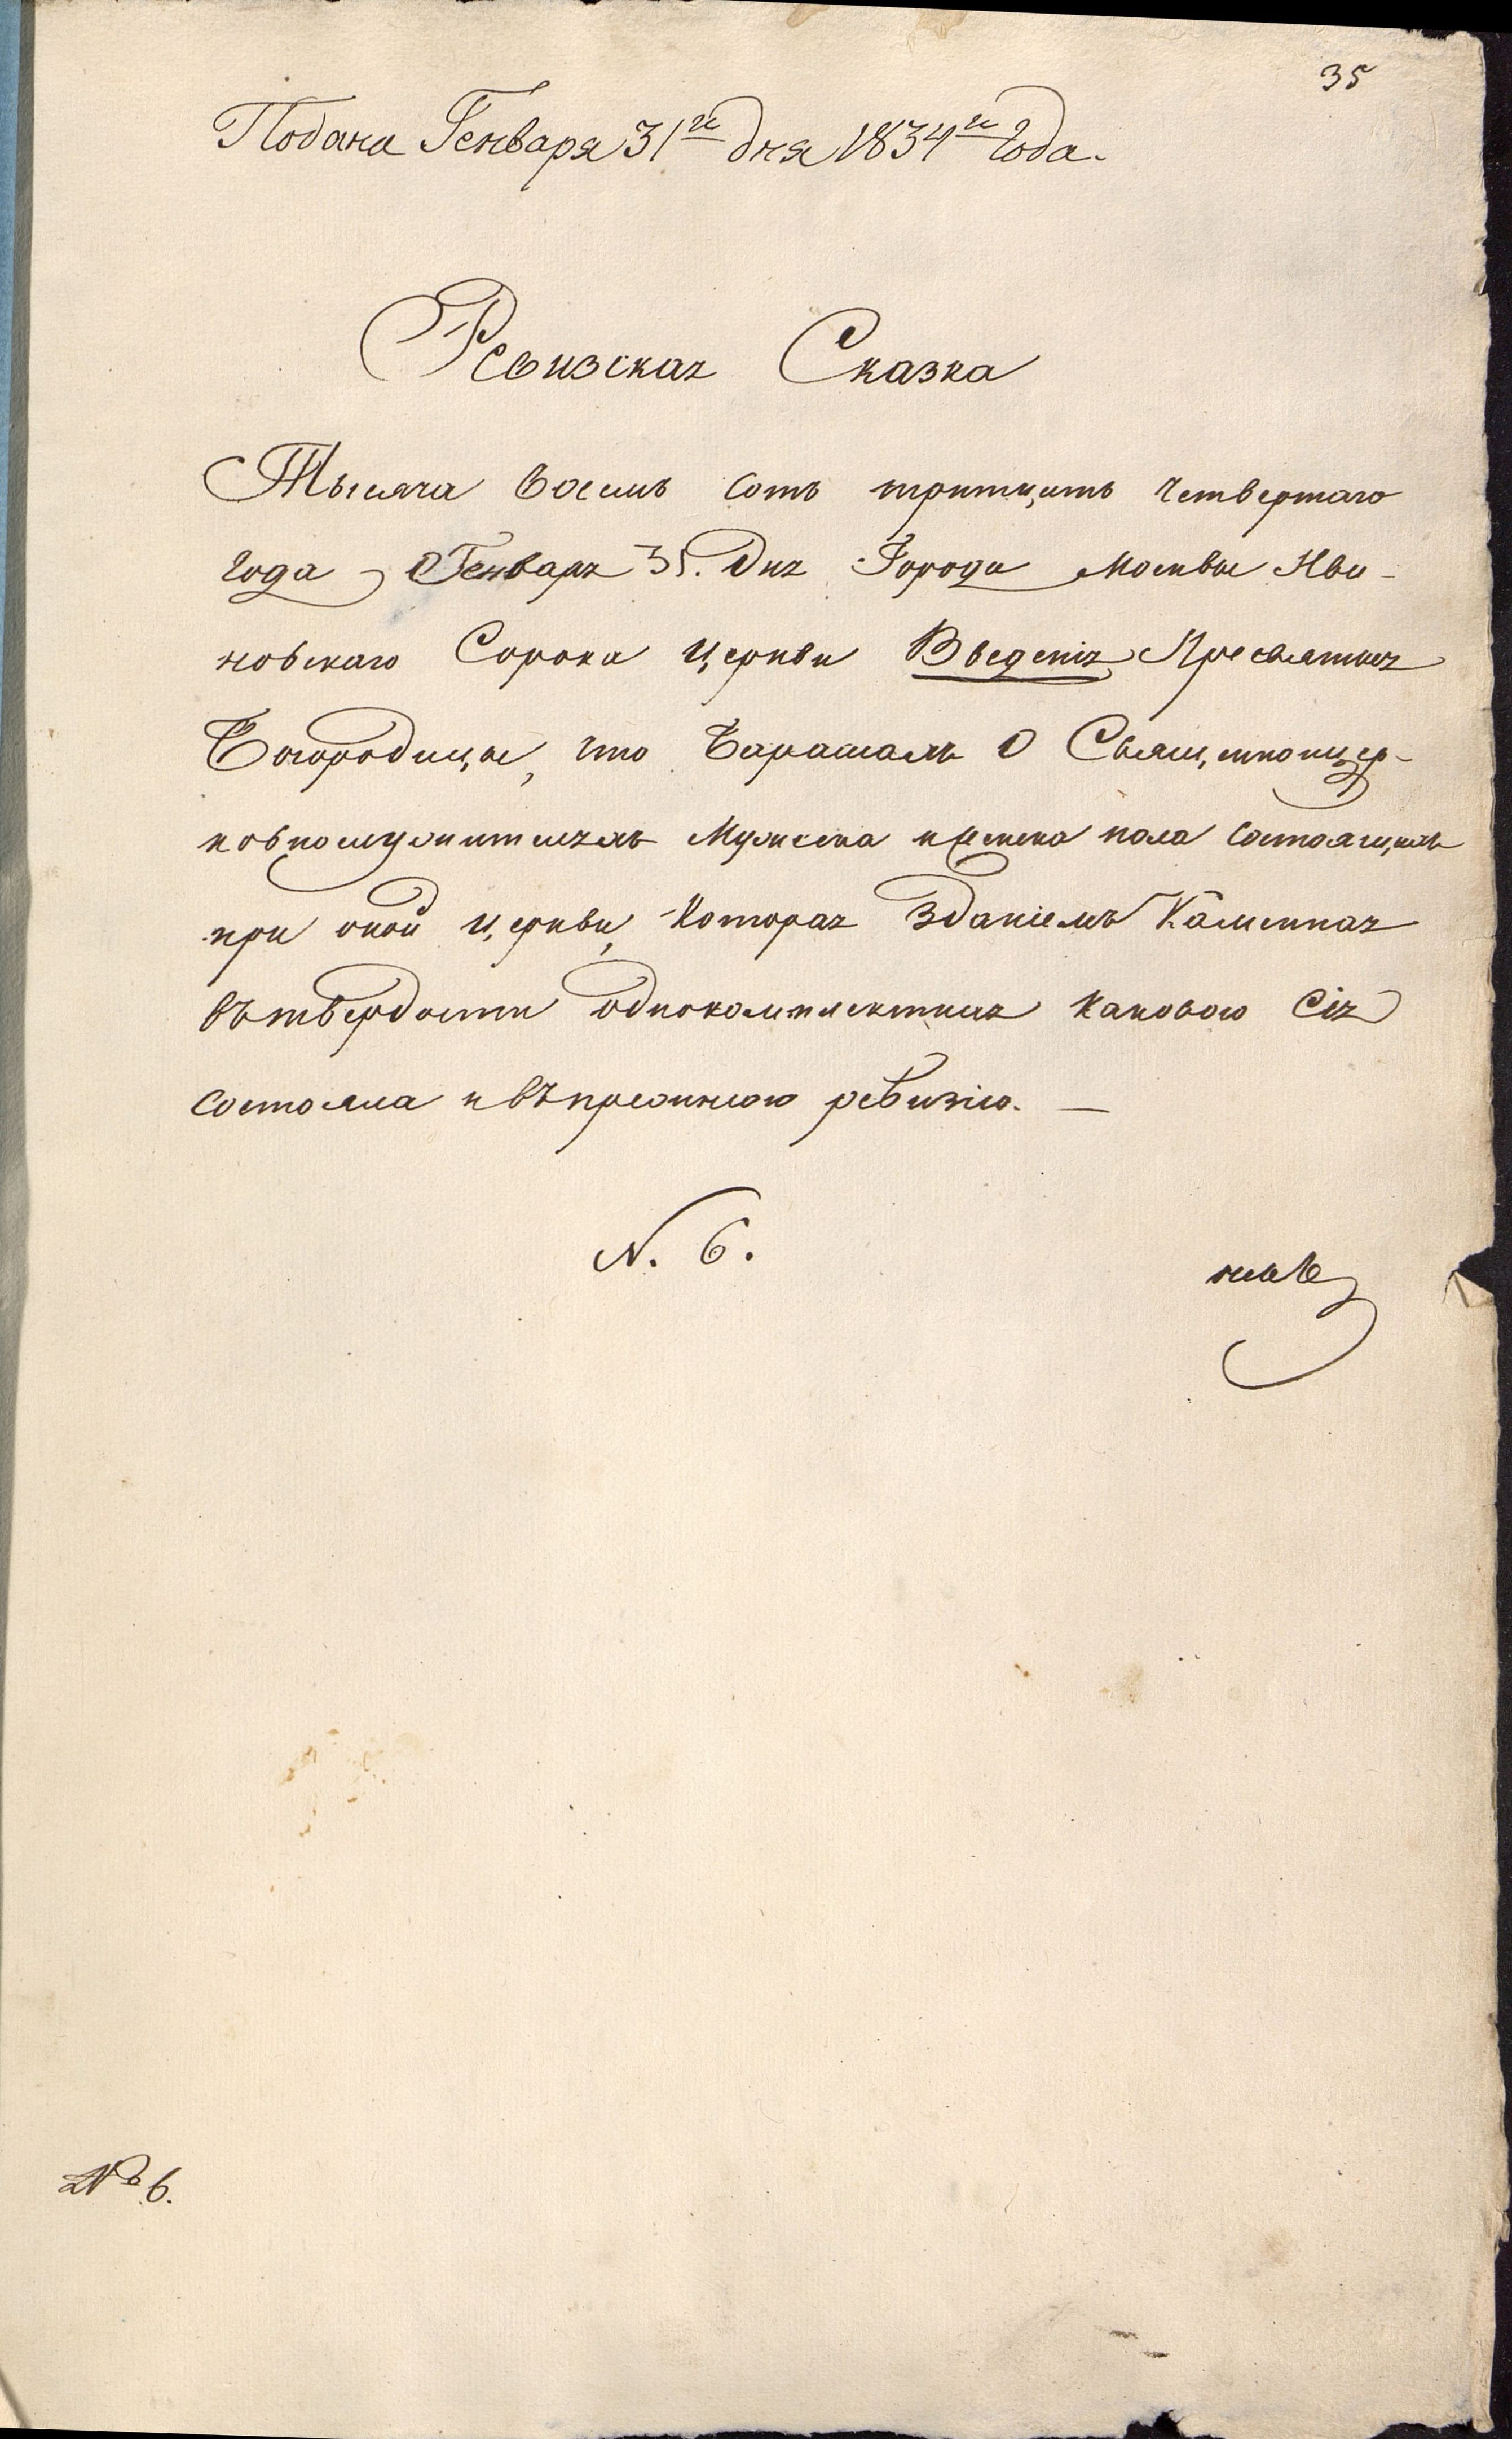 35
Подана Генваря 31го дня 1834го года.
Ревизская Сказка
Тысяча восемь сотъ тритцать четвертаго
года Генваря 31. дня Города Москвы Ива-
новскаго Сорока церкви Введенія Пресвятыя
Богородицы, что Барашахъ О Священноцер-
ковнослужителяхъ Мужеска и женска пола состоящихъ
при оной церкви, Которая Зданіемъ Каменная
въ твердости однокомплектная каковою Сія
состояла и въ прежнюю ревизію. —
N. 6.
№ 6.